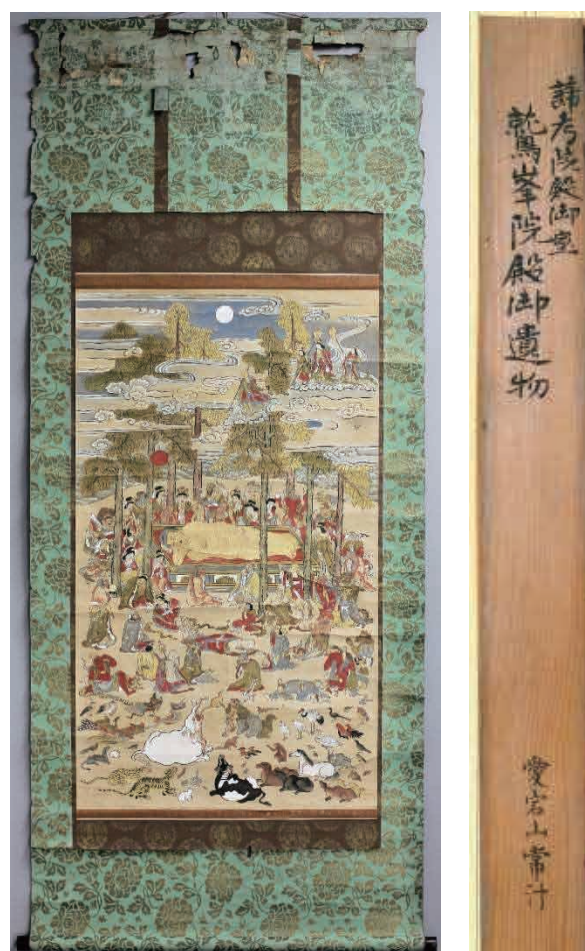 諦考院殿御室
鷲峯院殿御遺物
愛宕山常汁